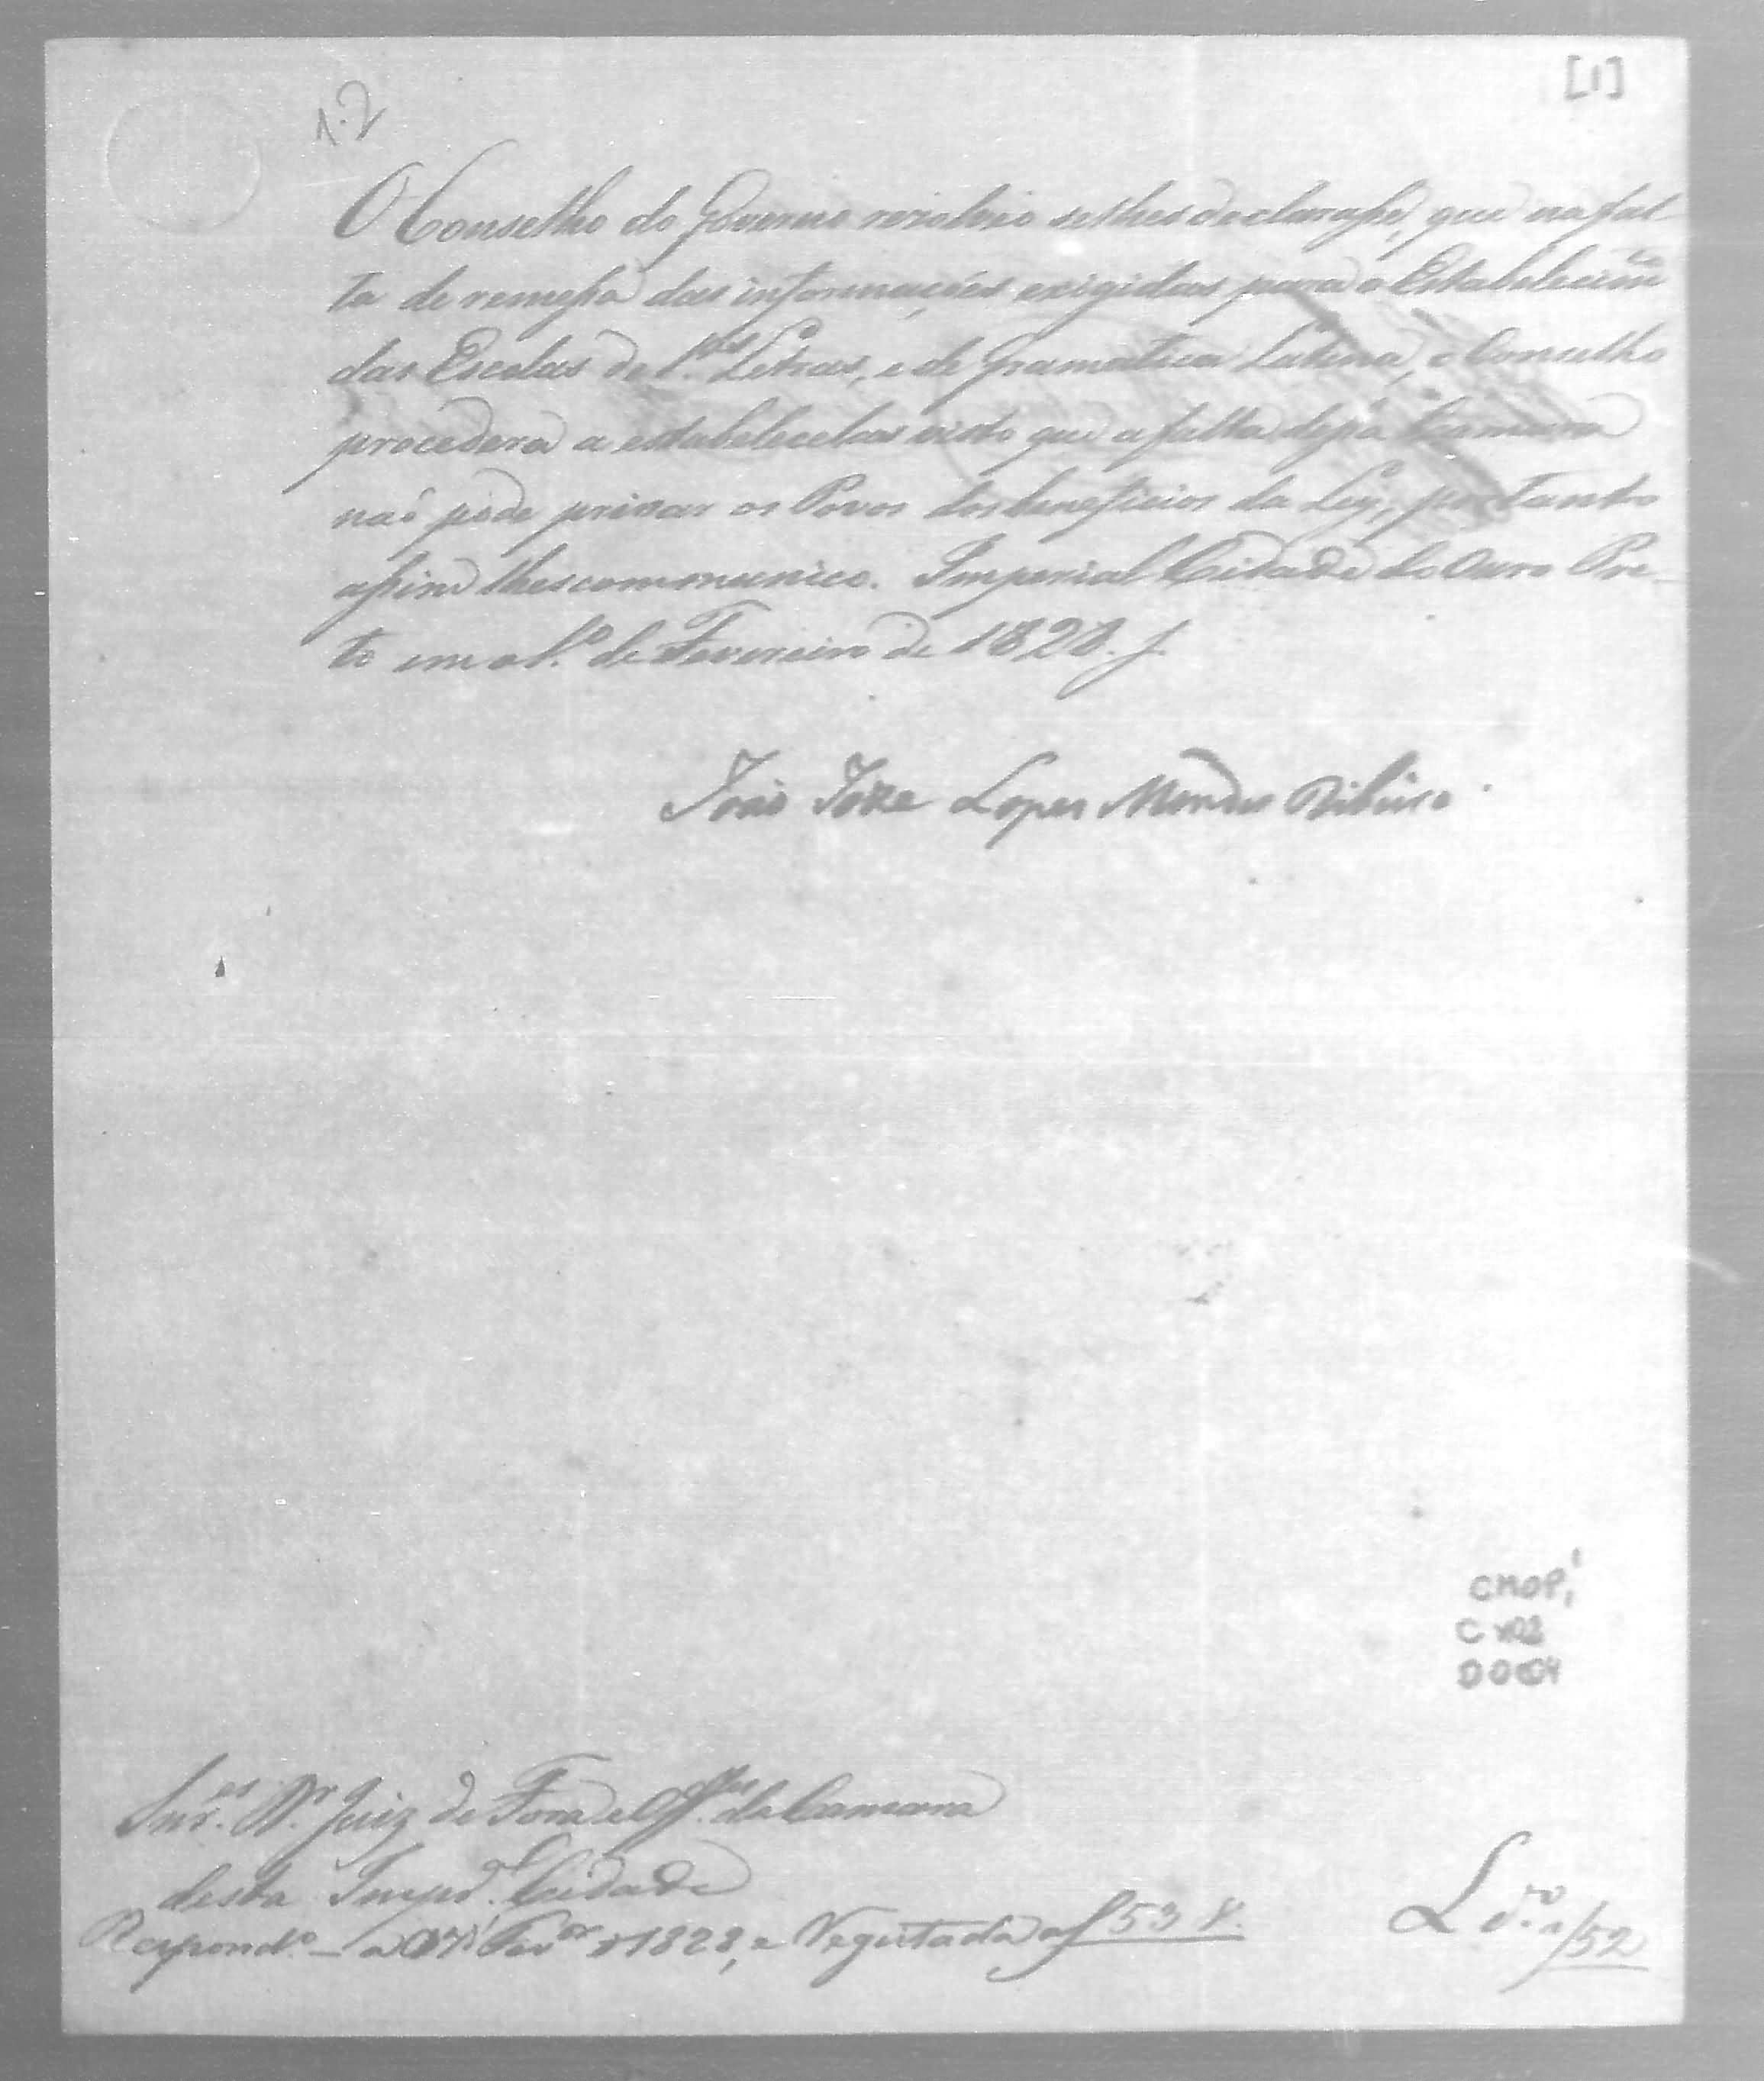 [1]
1.2
O Conselho do Governo rezolveo se lhes declarasse, que na fal-
ta de remessa das informações exigidas para o Estabelecim.to
das Escolas de 1.as Letras, e de Gramatica Latina, o Conselho
procederá a estabelecelas visto que a falta dessa Camara
naõ pode privar os Povos dos beneficios da Ley; portanto
assim lhes communico. Imperial Cidade do Ouro Pre-
to em o 1.º de Fevereiro de 1828.
João Joze Lopes Mendes Ribeiro
CMOP
Snr.es Dr. Juiz de Fora e Off.es da Camara
desta Imp.al Cidade
Respond.º a Fev.ro 1828, e Registada a f 53
a f 52